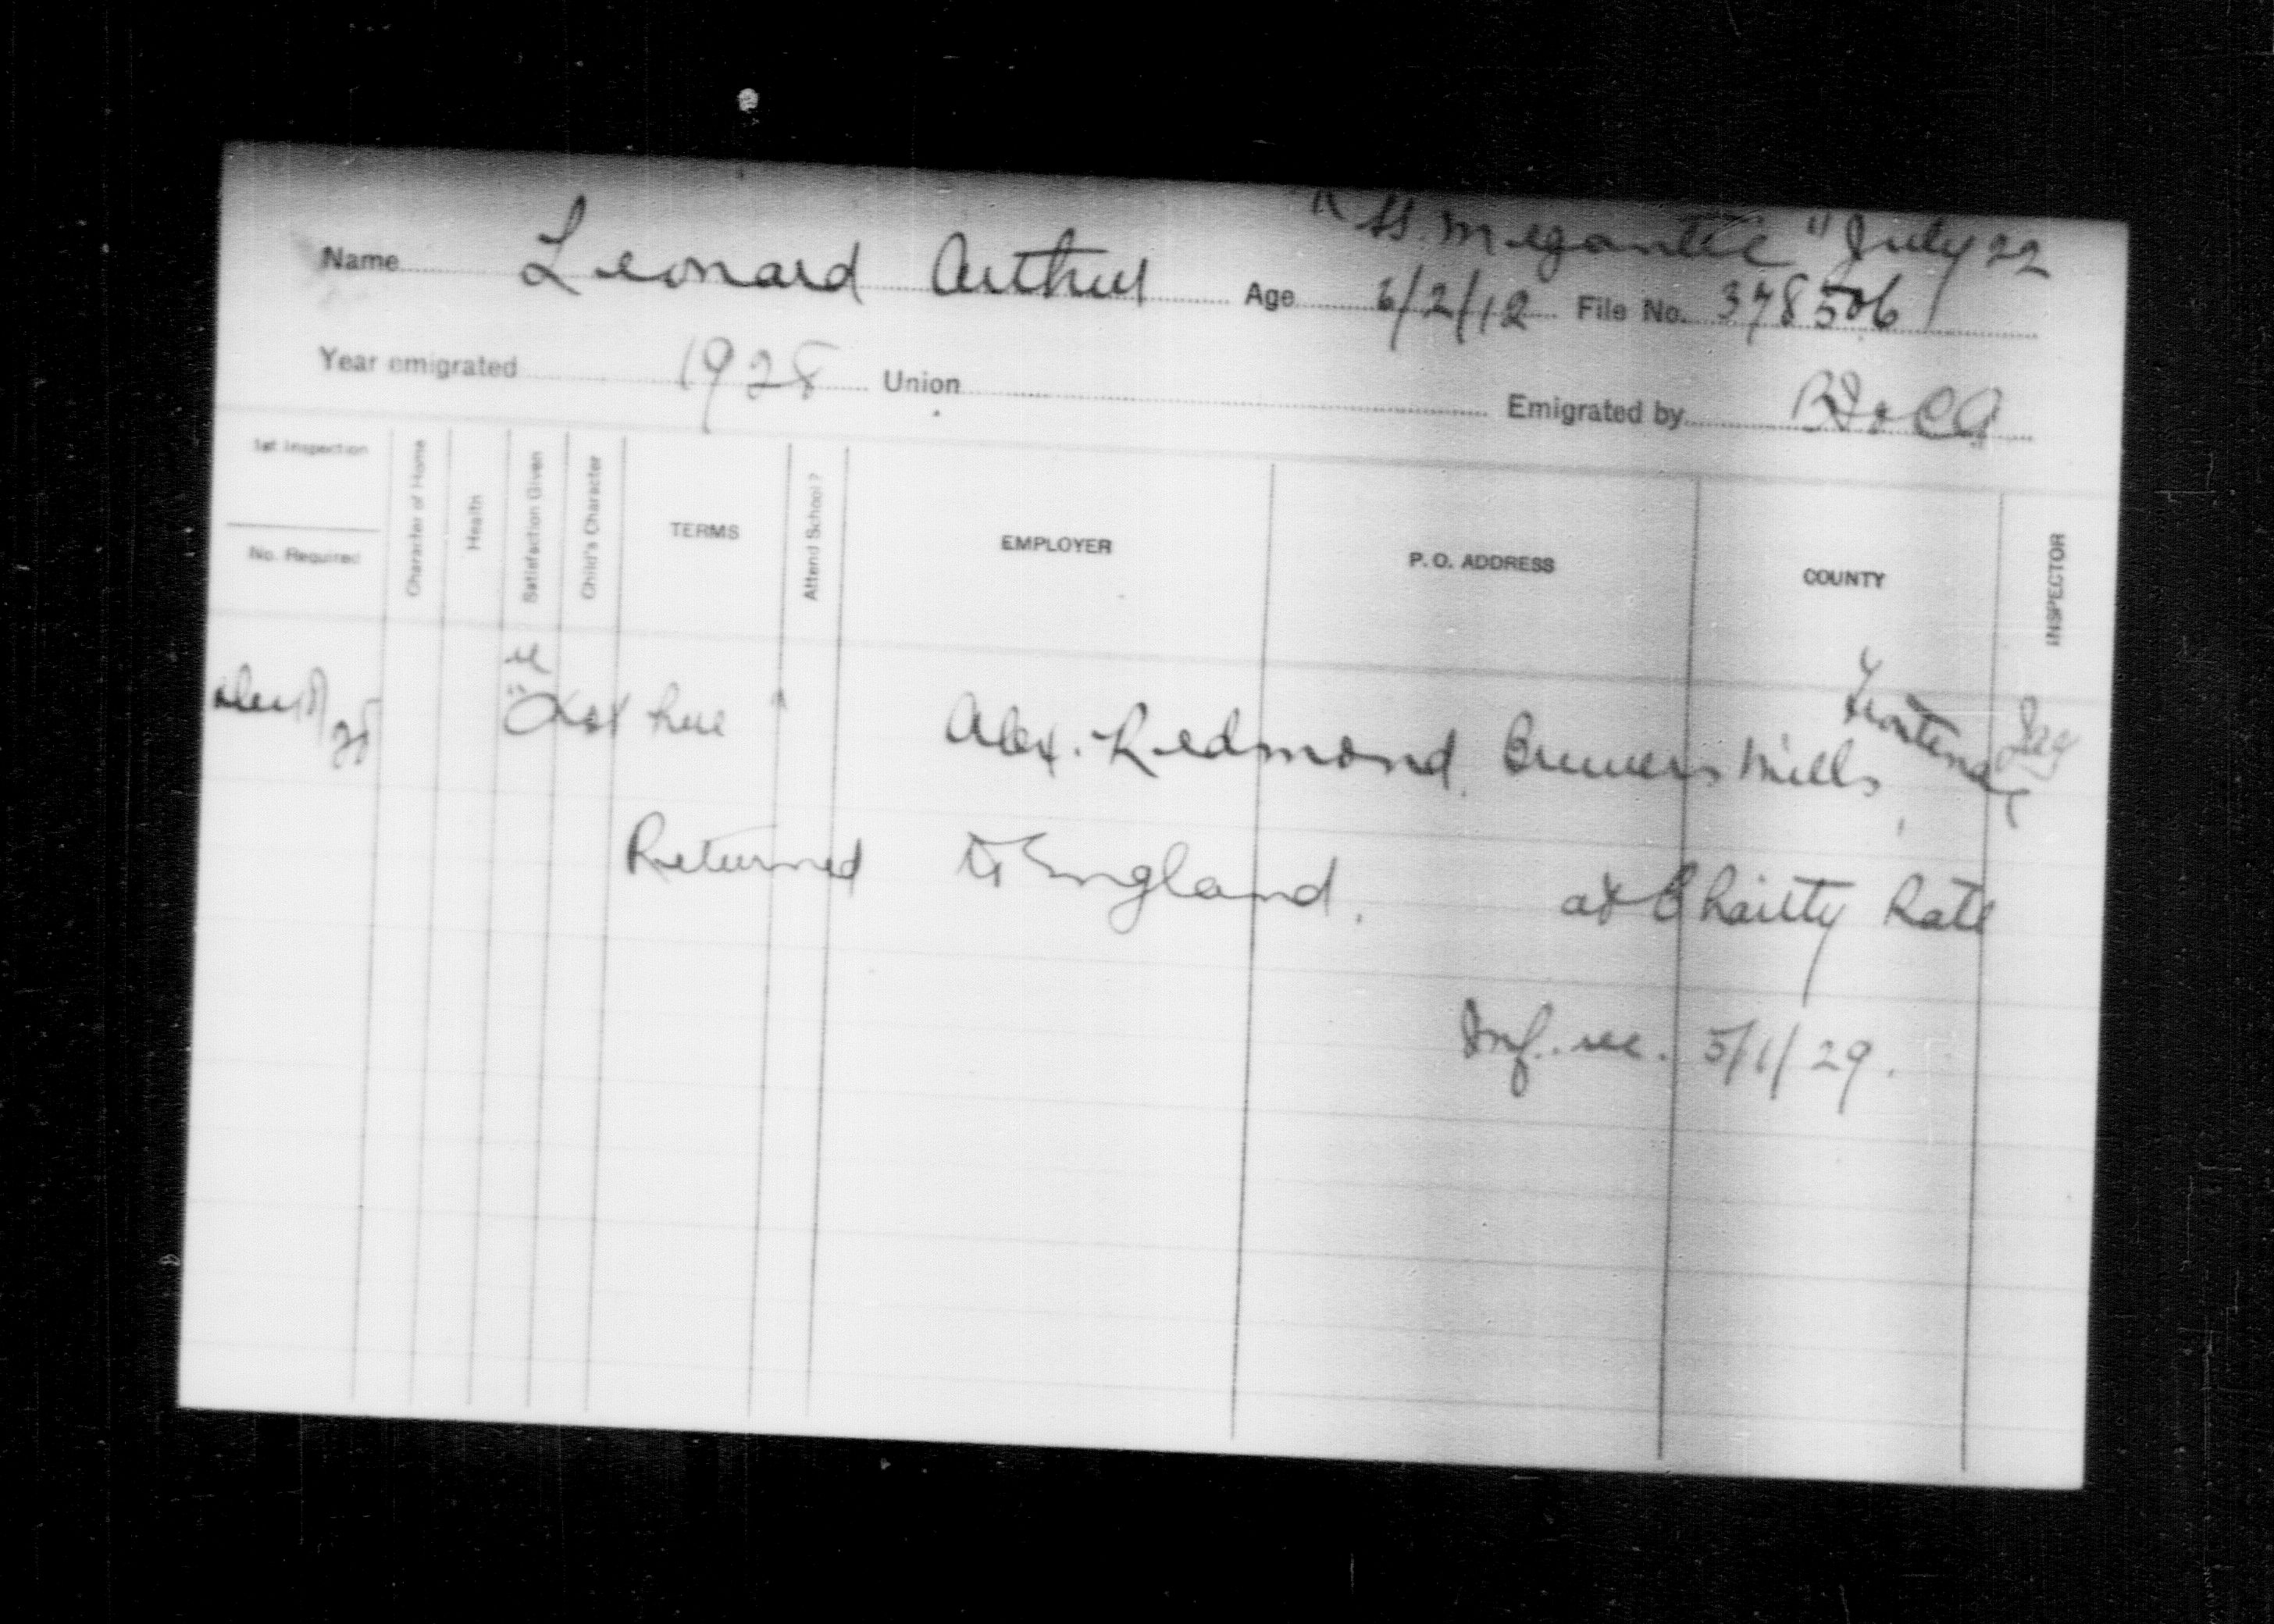 "SS. Megantic" July 22
Name Leonard Arthur Age 6/2/12 File No. 378506
Year emigrated 1928 Union Emigrated by
1st Inspection
No. Required
Character of Home
Health
Satisfaction Given
Child's Character
TERMS
Attend School?
EMPLOYER
P. O. ADDRESS
COUNTY
INSPECTOR
"Not here" Alex. Redmond, Brewers Mills, Frontenac
Returned to England. at Charity Rate
Inf. rec. 5/1/29.